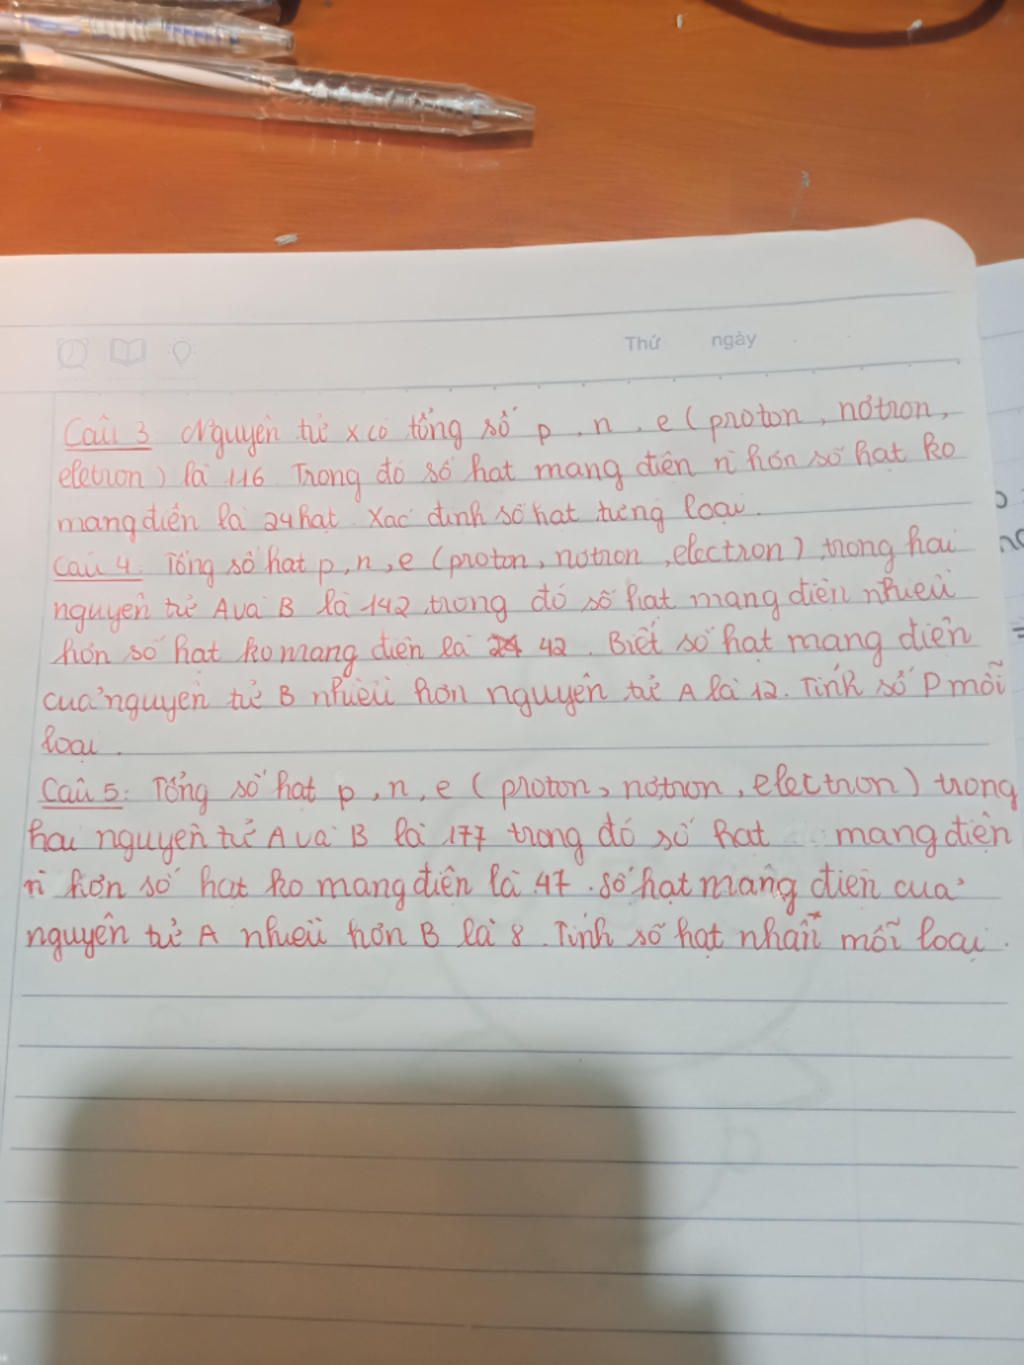 Thứ ngày
Câu 3 Nguyên tử X có tổng số p, n, e (proton, nơtron,
eletron) là 116 Trong đó số hạt mang điện n` hơn số hạt ko
mang điện là 24 hạt Xác định số hạt từng loại.
Câu 4: Tổng số hạt p, n, e (proton, notron, electron) trong hai
nguyên tử A và B là 142, trong đó số hạt mang điện nhiều
hơn số hạt ko mang điện là 42. Biết số hạt mang điện
của nguyên tử B nhiều hơn nguyên tử A là 12. Tính số P mỗi
loại.
Câu 5: Tổng số hạt p, n, e (proton, nơtron, electron) trong
hai nguyên tử A và B là 177 trong đó số hạt mang điện
n` hơn số hạt ko mang điện là 47. số hạt mang điện của
nguyên tử A nhiều hơn B là 8. Tính số hạt nhân mỗi loại.